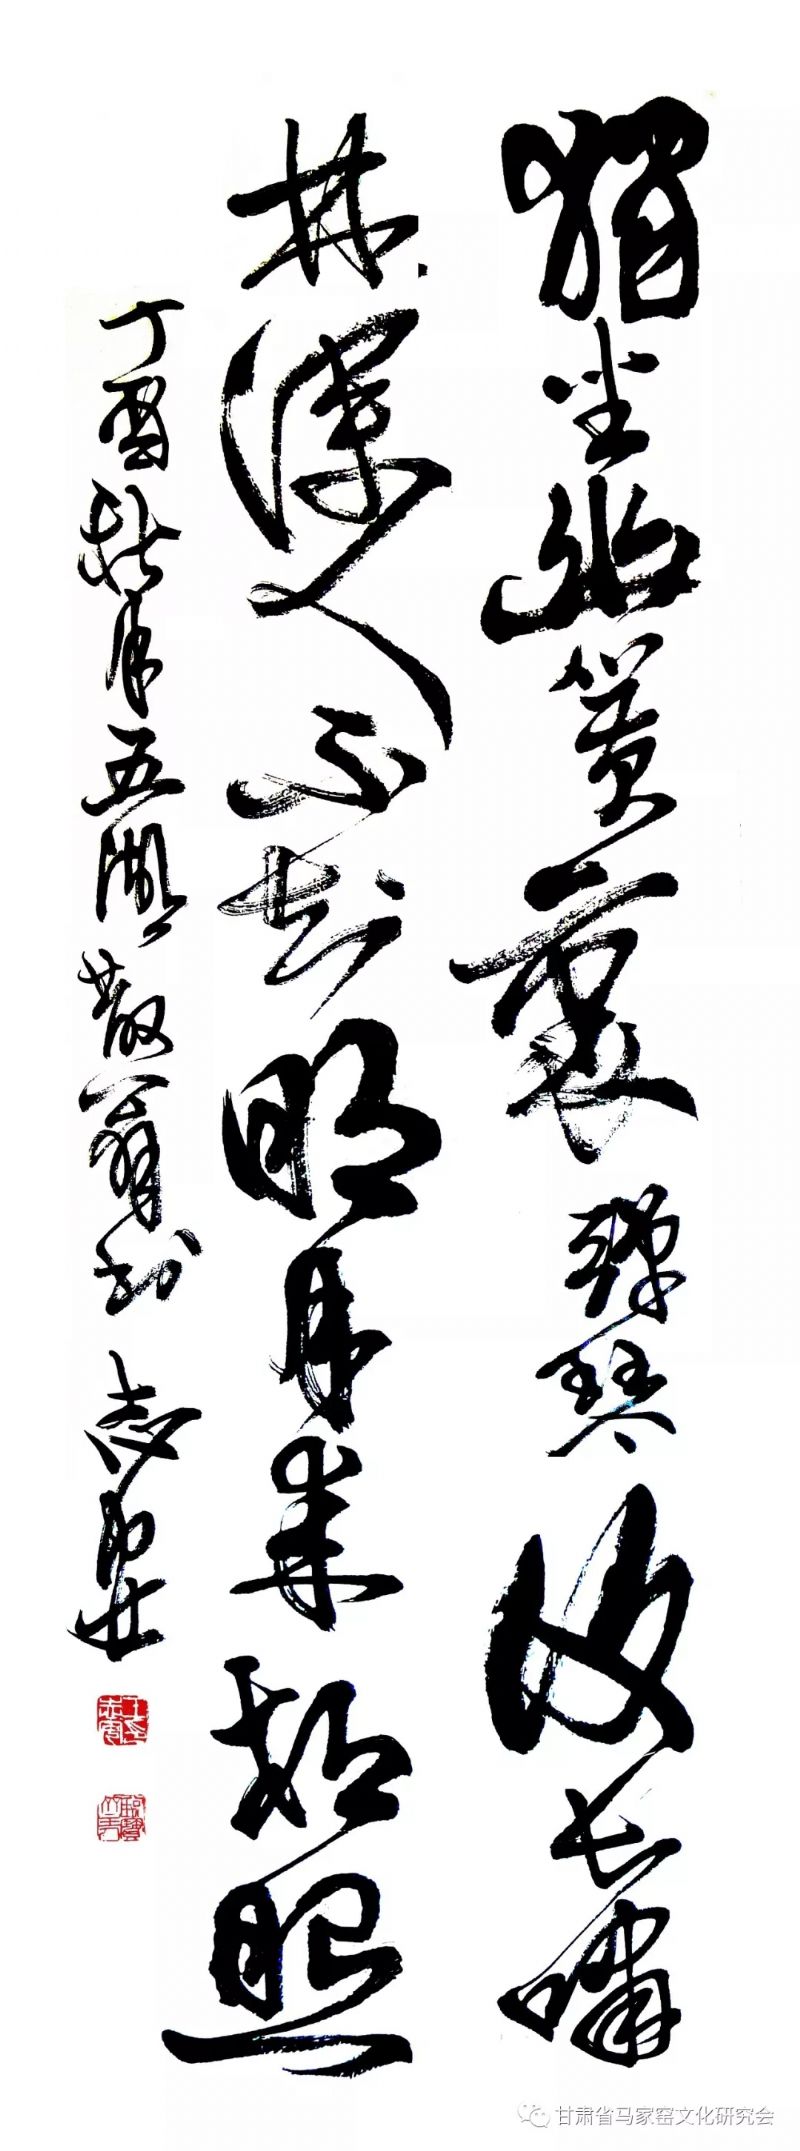 獨坐幽篁裏彈琴復長嘯
林深人不知明月来相照
丁酉秋月五湖散翁书志
甘肃省马家窑文化研究会